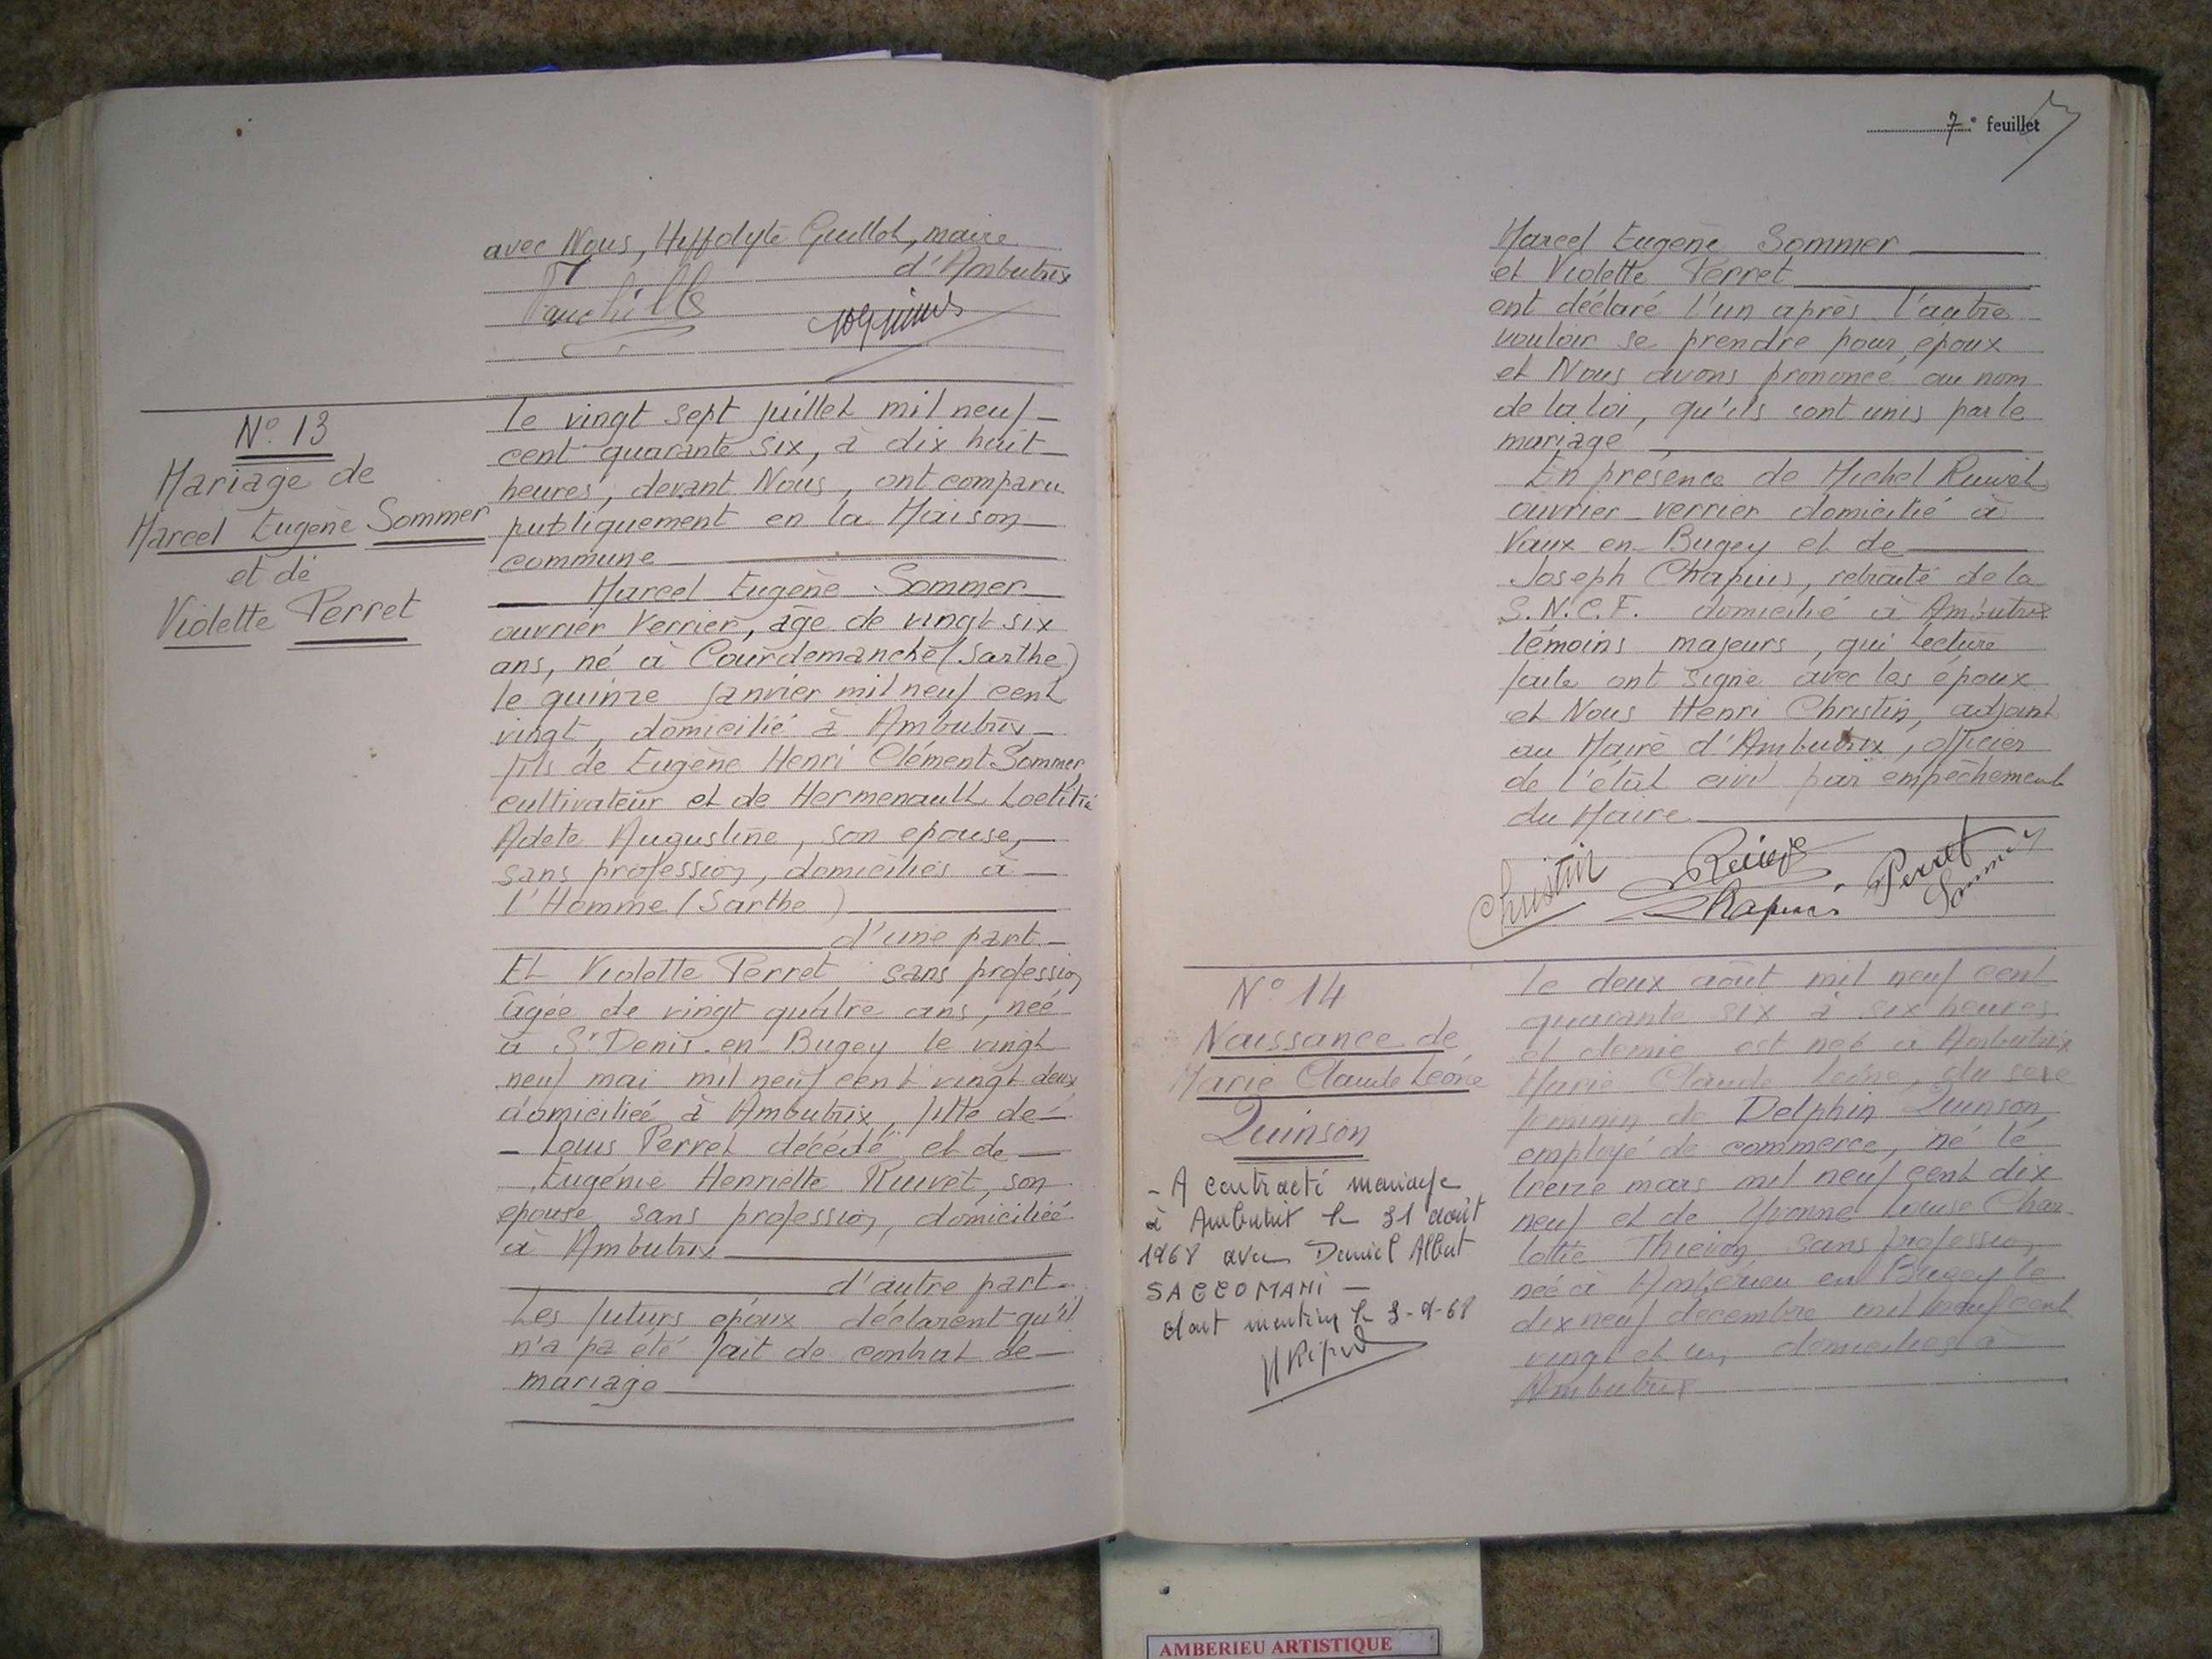 avec Nous, Hyppolyte Guillot, maire
d'Ambutrix
N° 13
Mariage de
Marcel Eugène Sommer
et de
Violette Perret
Le vingt sept juillet mil neuf
cent quarante six, à dix huit
heures, devant Nous, ont comparu
publiquement en la Maison
commune
Marcel Eugène Sommer
ouvrier verrier, âgé de vingt six
ans, né à Courdemanche (Sarthe)
le quinze janvier mil neuf cent
vingt, domicilié à Ambutrix
fils de Eugène Henri Clément Sommer
cultivateur et de Hermenault Loetitia
Adele Augustine, son epouse,
sans profession, domiciliés à
l'Homme (Sarthe)
d'une part
Et Violette Perret sans profession
âgée de vingt quatre ans, née
à St Denis-en-Bugey le vingt
neuf mai mil neuf cent vingt deux
domiciliée à Ambutrix, fille de
Louis Perret décédé et de
Eugénie Henriette Ruivet, son
epouse sans profession, domiciliée
à Ambutrix
d'autre part
Les futurs epoux déclarent qu'il
n'a pa été fait de contrat de
mariage
7e feuillet
Marcel Eugène Sommer
et Violette Perret
ont déclaré l'un après l'autre
vouloir se prendre pour époux
et Nous avons prononcé au nom
de la loi, qu'ils sont unis par le
mariage
En presence de Michel Ruivet
ouvrier verrier domicilié à
Vaux en Bugey et de
Joseph Chapuis, retraité de la
S.N.C.F. domicilié à Ambutrix
témoins majeurs, qui lecture
faite ont signé avec les époux
et Nous Henri Christin, adjoint
au Maire d'Ambutrix, officier
de l'état civil par empêchement
du Maire
Christin Ruivet Perret
Chapuis Sommer
N° 14
Naissance de
Marie Claude Léone
Quinson
- A contracté mariage
à Ambutrix le 31 août
1968 avec Daniel Albert
SACCOMANI -
Dont mention le 3-9-68
Le deux août mil neuf cent
quarante six à six heures
et demie est née à Ambutrix
Marie Claude Léone, du sexe
féminin de Delphin Quinson
employé de commerce, né le
treize mars mil neuf cent dix
neuf et de Yvonne Louise Char-
lotte Thievon sans profession
née à Ambérieu en Bugey le
dix neuf décembre mil neuf cent
vingt et un, domiciliés à
Ambutrix
AMBERIEU ARTISTIQUE